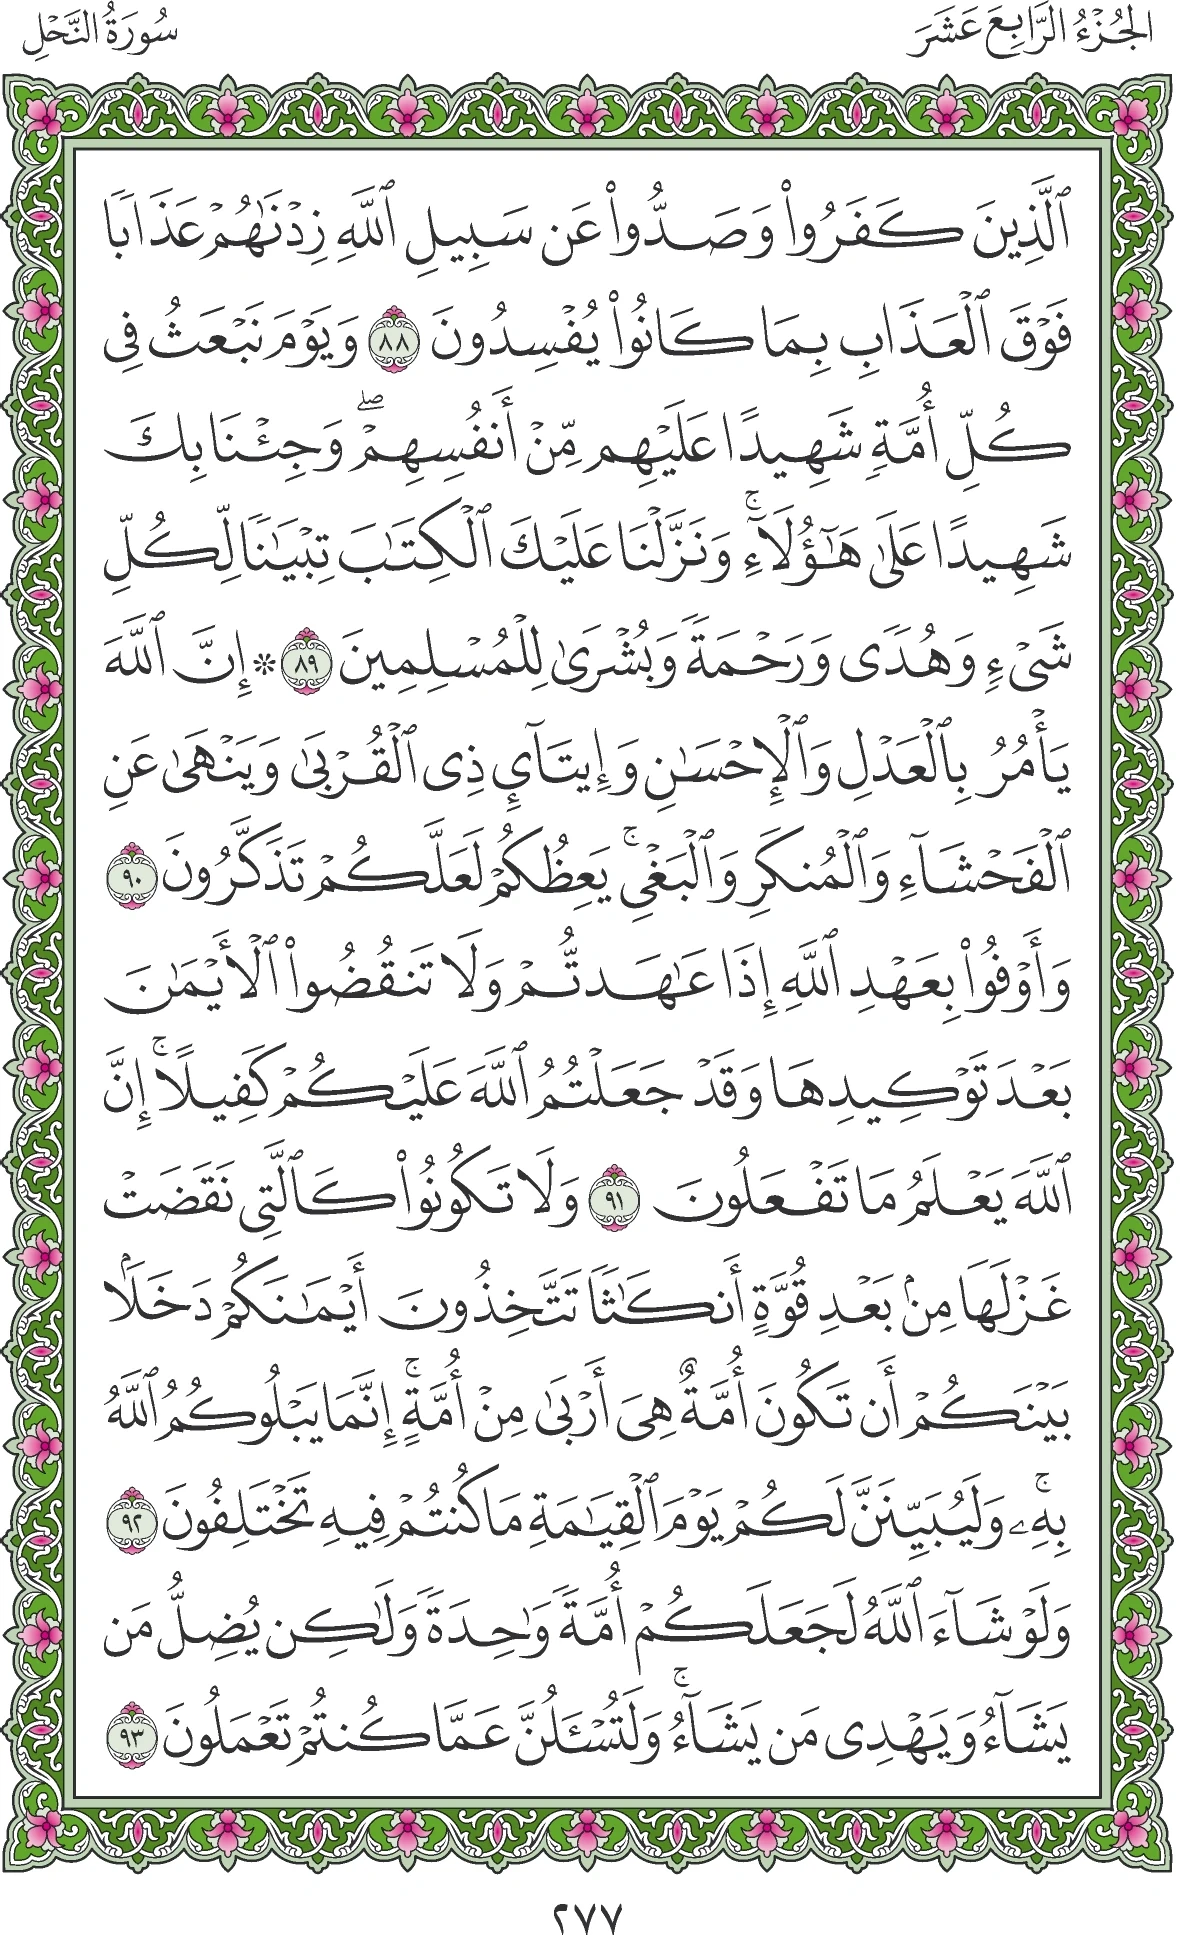 الجُزْءُ الرَّابِعَ عَشَرَ
سُورَةُ النَّحْلِ
ٱلَّذِينَ كَفَرُوا۟ وَصَدُّوا۟ عَن سَبِيلِ ٱللَّهِ زِدْنَـٰهُمْ عَذَابًا
فَوْقَ ٱلْعَذَابِ بِمَا كَانُوا۟ يُفْسِدُونَ ٨٨ وَيَوْمَ نَبْعَثُ فِى
كُلِّ أُمَّةٍ شَهِيدًا عَلَيْهِم مِّنْ أَنفُسِهِمْ ۖ وَجِئْنَا بِكَ
شَهِيدًا عَلَىٰ هَـٰٓؤُلَآءِ ۚ وَنَزَّلْنَا عَلَيْكَ ٱلْكِتَـٰبَ تِبْيَـٰنًا لِّكُلِّ
شَىْءٍ وَهُدًى وَرَحْمَةً وَبُشْرَىٰ لِلْمُسْلِمِينَ ٨٩ ۞ إِنَّ ٱللَّهَ
يَأْمُرُ بِٱلْعَدْلِ وَٱلْإِحْسَـٰنِ وَإِيتَآئِ ذِى ٱلْقُرْبَىٰ وَيَنْهَىٰ عَنِ
ٱلْفَحْشَآءِ وَٱلْمُنكَرِ وَٱلْبَغْىِ ۚ يَعِظُكُمْ لَعَلَّكُمْ تَذَكَّرُونَ ٩٠
وَأَوْفُوا۟ بِعَهْدِ ٱللَّهِ إِذَا عَـٰهَدتُّمْ وَلَا تَنقُضُوا۟ ٱلْأَيْمَـٰنَ
بَعْدَ تَوْكِيدِهَا وَقَدْ جَعَلْتُمُ ٱللَّهَ عَلَيْكُمْ كَفِيلًا ۚ إِنَّ
ٱللَّهَ يَعْلَمُ مَا تَفْعَلُونَ ٩١ وَلَا تَكُونُوا۟ كَٱلَّتِى نَقَضَتْ
غَزْلَهَا مِنۢ بَعْدِ قُوَّةٍ أَنكَـٰثًا تَتَّخِذُونَ أَيْمَـٰنَكُمْ دَخَلًۢا
بَيْنَكُمْ أَن تَكُونَ أُمَّةٌ هِىَ أَرْبَىٰ مِنْ أُمَّةٍ ۚ إِنَّمَا يَبْلُوكُمُ ٱللَّهُ
بِهِۦ ۚ وَلَيُبَيِّنَنَّ لَكُمْ يَوْمَ ٱلْقِيَـٰمَةِ مَا كُنتُمْ فِيهِ تَخْتَلِفُونَ ٩٢
وَلَوْ شَآءَ ٱللَّهُ لَجَعَلَكُمْ أُمَّةً وَٰحِدَةً وَلَـٰكِن يُضِلُّ مَن
يَشَآءُ وَيَهْدِى مَن يَشَآءُ ۚ وَلَتُسْـَٔلُنَّ عَمَّا كُنتُمْ تَعْمَلُونَ ٩٣
٢٧٧